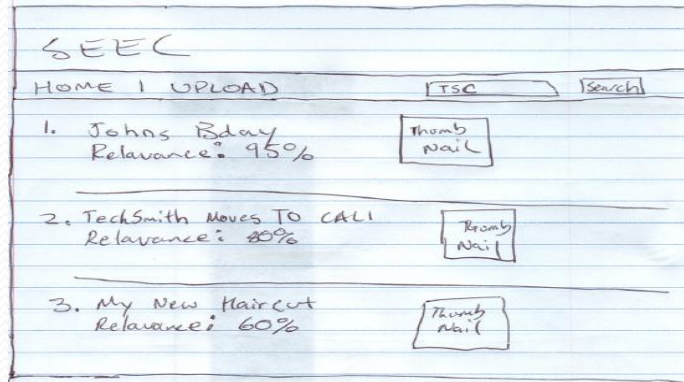 SEEC
HOME | UPLOAD TSC Search
1. Johns Bday
Relavance: 95%
Thumb
Nail
2. TechSmith Moves TO CALI
Relavance: 80%
Thumb
Nail
3. My New Haircut
Relavance: 60%
Thumb
Nail